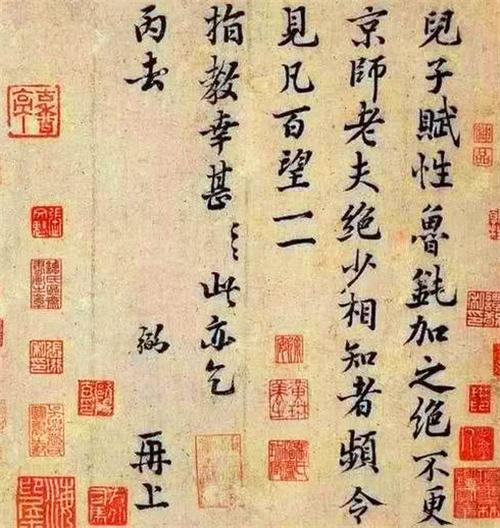 兒子賦性魯鈍加之絕不更
京師老夫絕少相知者頻令
見凡百望一二
指教幸甚〻〻此亦乞
丙去 弼 再上